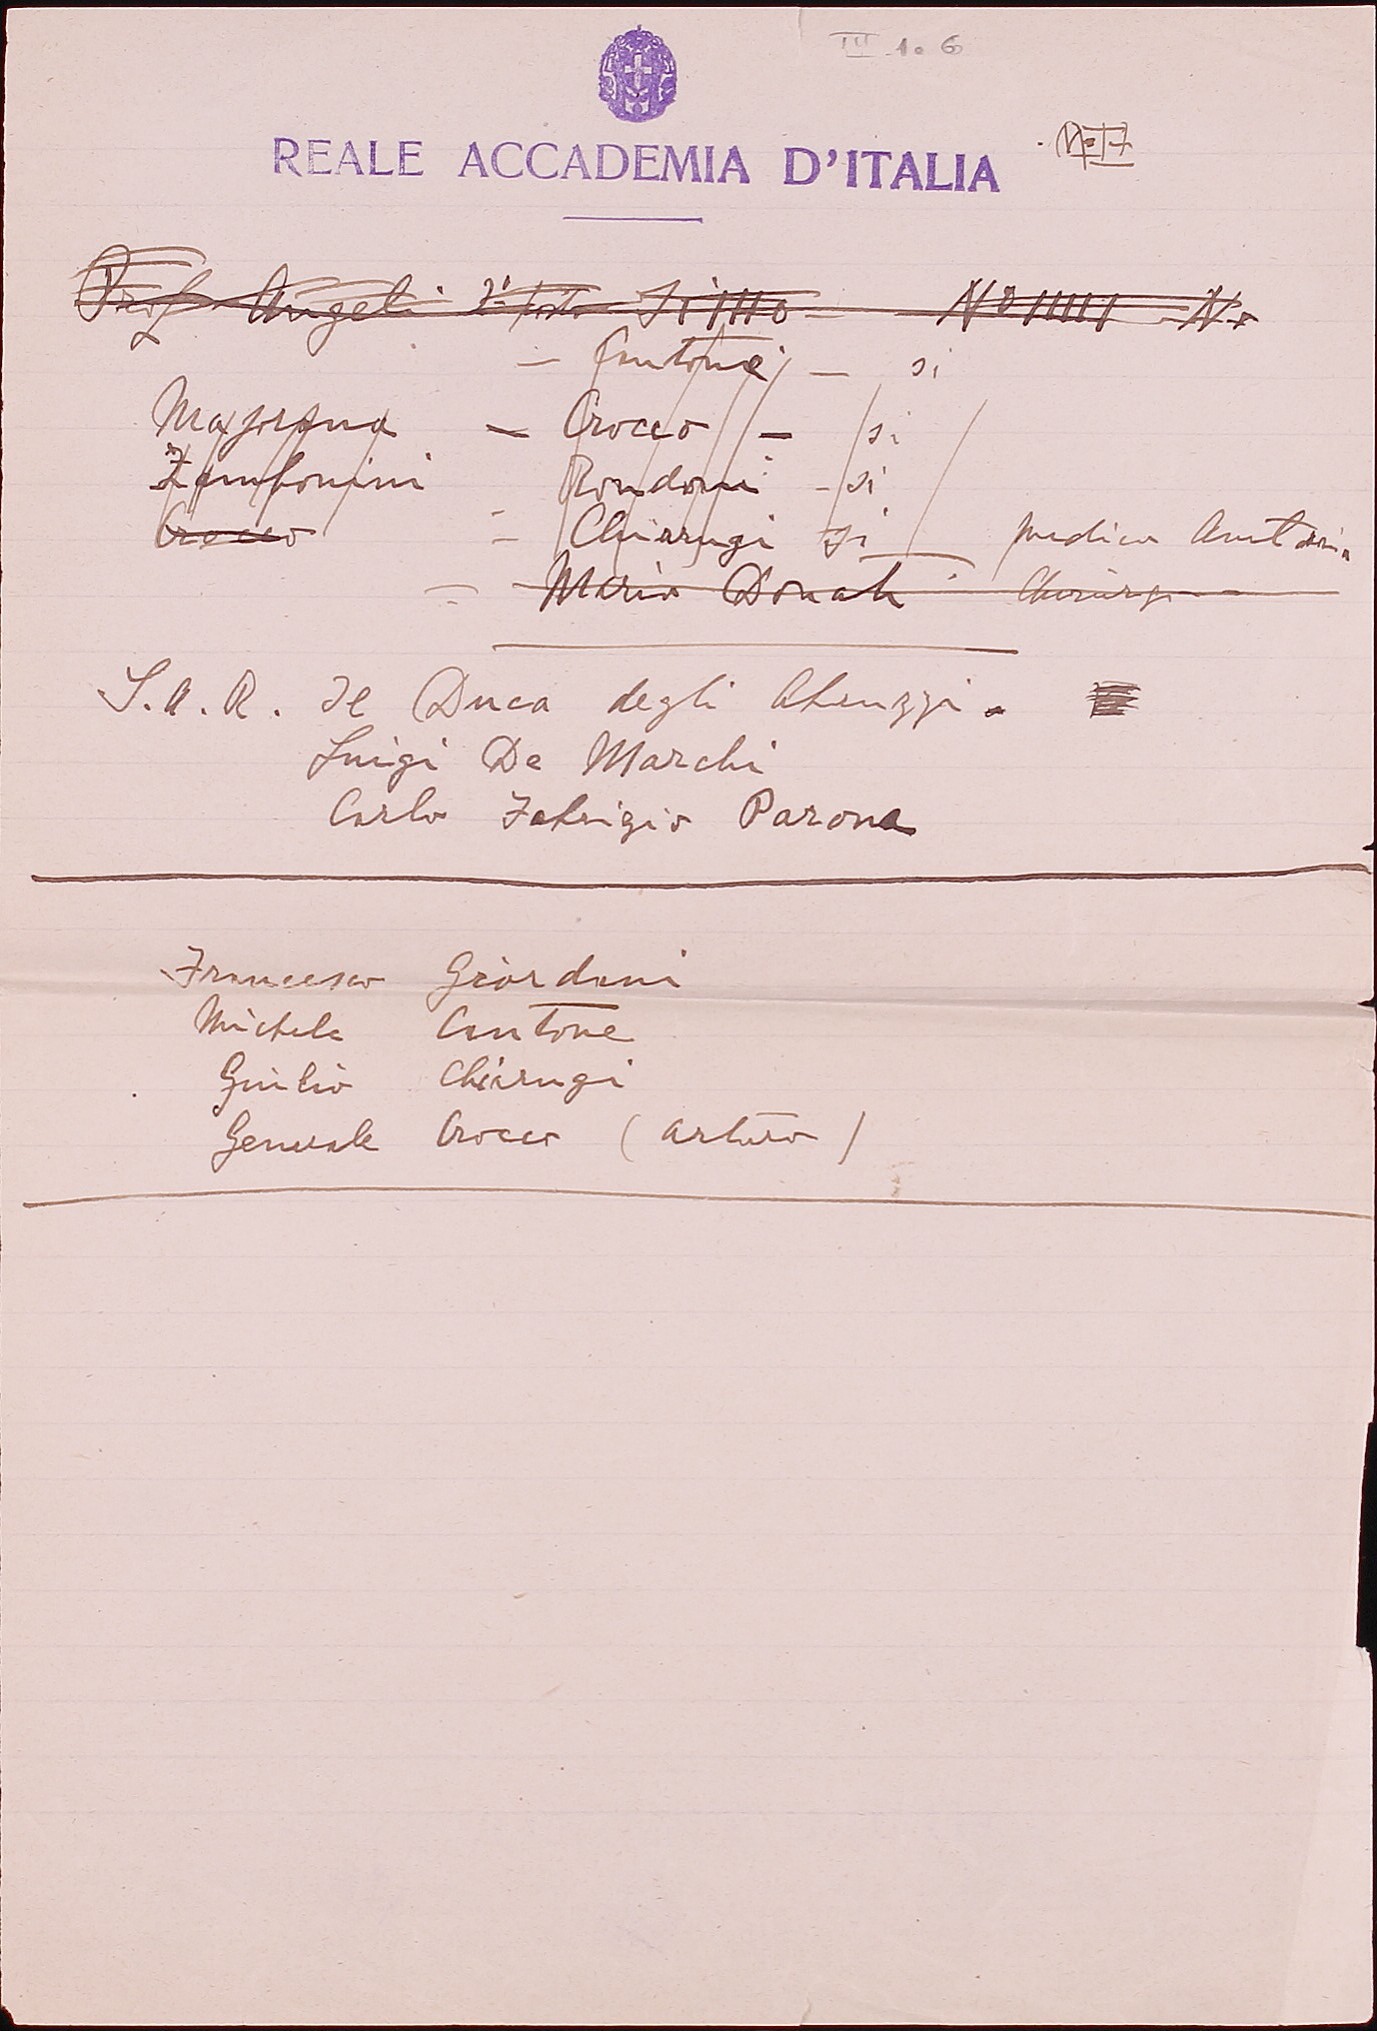 III 1. 6
REALE ACCADEMIA D'ITALIA
Prof Angeli Si IIII No IIIII No
– Cantone – si
Majorana – Crocco – si
Zambonini Rondoni – si
Crocco – Chiarugi si medico Anatomia
– Mario Donati Chirurgo
S.A.R. Il Duca degli Abruzzi.
Luigi De Marchi
Carlo Fabrizio Parona
Francesco Giordani
Michele Cantone
Giulio Chiarugi
Generale Crocco (Arturo)